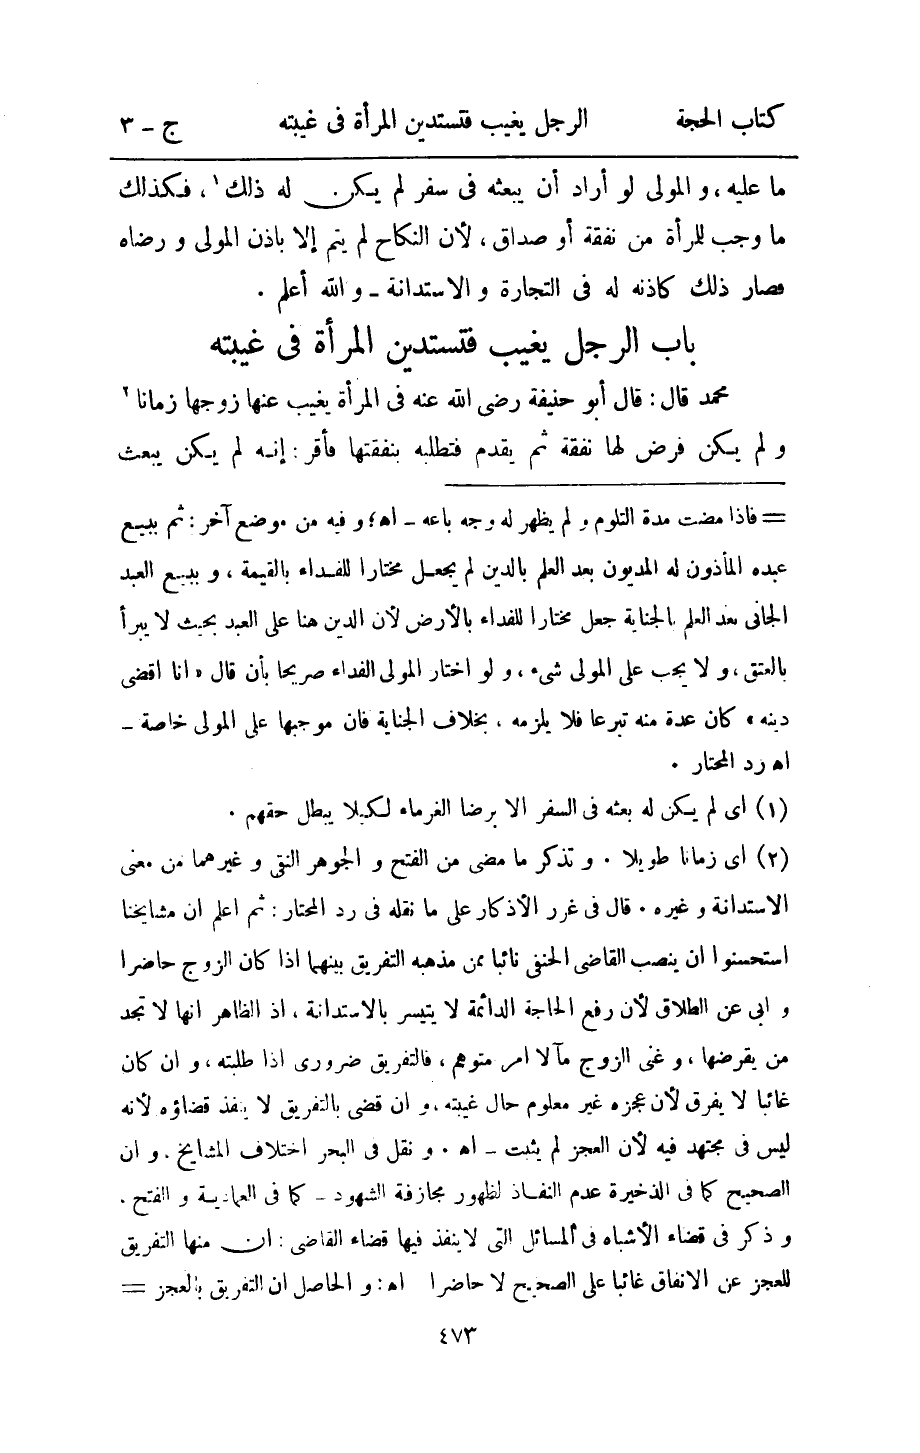 كتاب الحجة الرجل يغيب فتستدين المرأة فى غيبته ج ـ ٣
ما عليه ، و المولى لو أراد أن يبعثه فى سفر لم يكن له ذلك ١ ، فكذلك
ما وجب للمرأة من نفقة أو صداق ، لأن النكاح لم يتم إلا باذن المولى و رضاه
فصار ذلك كاذنه له فى التجارة و الاستدانة ـ و الله أعلم .
باب الرجل يغيب فتستدين المرأة فى غيبته
محمد قال : قال أبو حنيفة رضى الله عنه فى المرأة يغيب عنها زوجها زمانا ٢
و لم يكن فرض لها نفقة ثم يقدم فتطلبه بنفقتها فأقر : إنه لم يكن يبعث
= فاذا مضت مدة التلوم و لم يظهر له وجه باعه ـ اه ؛ و فيه من موضع آخر : ثم ببيع
عبده المأذون له المديون بعد العلم بالدين لم يجعل مختارا للفداء بالقيمة ، و ببيع العبد
الجانى بعد العلم بالجناية جعل مختارا للفداء بالأرض لأن الدين هنا على العبد بحيث لا يبرأ
بالعتق ، و لا يجب على المولى شىء ، و لو اختار المولى الفداء صريحا بأن قال « انا اقضى
دينه » كان عدة منه تبرعا فلا يلزمه ، بخلاف الجناية فان موجبها على المولى خاصة ـ
اه رد المحتار .
(١) اى لم يكن له بعثه فى السفر الا برضا الغرماء لكيلا يبطل حقهم .
(٢) اى زمانا طويلا . و تذكر ما مضى من الفتح و الجوهر النقى و غيرهما من معنى
الاستدانة و غيره . قال فى غرر الأذكار على ما نقله فى رد المحتار : ثم اعلم ان مشايخنا
استحسنوا ان ينصب القاضى الحنفى نائبا ممن مذهبه التفريق بينهما اذا كان الزوج حاضرا
و ابى عن الطلاق لأن رفع الحاجة الدائمة لا يتيسر بالاستدانة ، اذ الظاهر انها لا تجد
من يقرضها ، و غنى الزوج مآلا امر متوهم ، فالتفريق ضرورى اذا طلبته ، و ان كان
غائبا لا يفرق لأن عجزه غير معلوم حال غيبته ، و ان قضى بالتفريق لا ينفذ قضاؤه لأنه
ليس فى مجتهد فيه لأن العجز لم يثبت ـ اه . و نقل فى البحر اختلاف المشايخ . و ان
الصحيح كما فى الذخيرة عدم النفاذ لظهور مجازفة الشهود ـ كما فى العمادية و الفتح .
و ذكر فى قضاء الأشباه فى المسائل التى لا ينفذ فيها قضاء القاضى : ان منها التفريق
للعجز عن الانفاق غائبا على الصحيح لا حاضرا اه : و الحاصل ان التفريق بالعجز =
٤٧٣